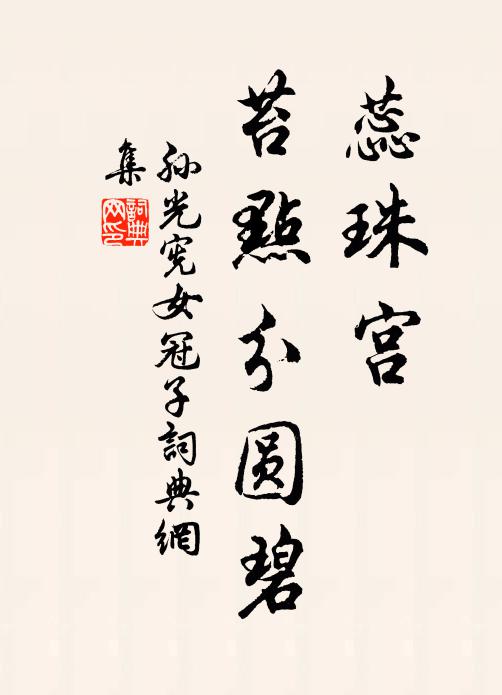 蕊珠宫
苔點分圆碧
孙光宪女冠子詞典網
集
詞典
网印